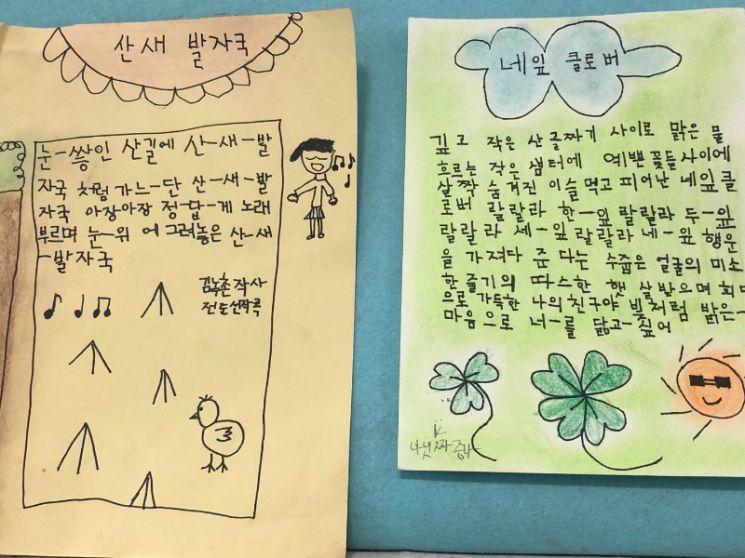 산새 발자국
눈-쌓인 산길에 산-새-발
자국 처럼 가느-단 산-새-발
자국 아장아장 정-답-게 노래
부르며 눈-위 에 그려놓은 산-새
-발자국
김녹촌 작사
전순선작곡
네잎 클로버
깊고 작은 산 골짜기 사이로 맑은 물
흐르는 작은 샘터에 예쁜 꽃들 사이에
살짝 숨겨진 이슬 먹고 피어난 네잎 클
로버 랄랄라 한-잎 랄랄라 두-잎
랄랄라 세-잎 랄랄라 네-잎 행운
을 가져다 준 다는 수줍은 얼굴의 미소
한 줄기의 따스한 햇 살받으며 희
으로 가득한 나의친구야 빛처럼 밝은-
마음으로 너-를 닮고-싶어